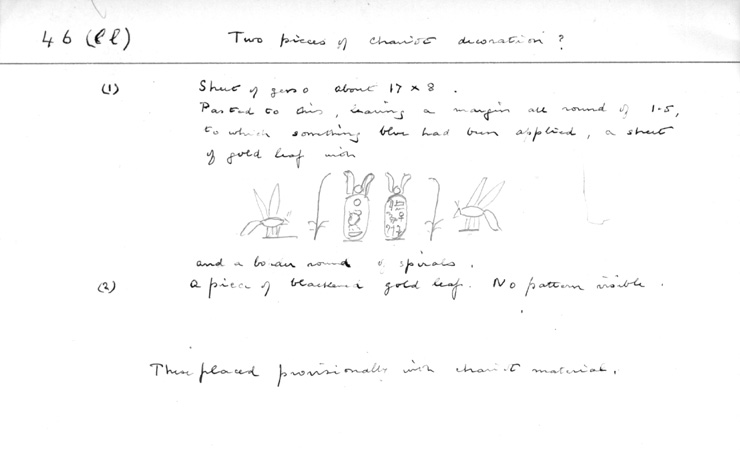 46 (ll) Two pieces of chariot decoration?
(1) Sheet of gesso about 17 x 8.
Pasted to this, leaving a margin all round of 1.5,
to which something blue had been applied, a sheet
of gold leaf with
and a border round of spirals.
(2) A piece of blackened gold leaf. No pattern visible.
These placed provisionally with chariot material.